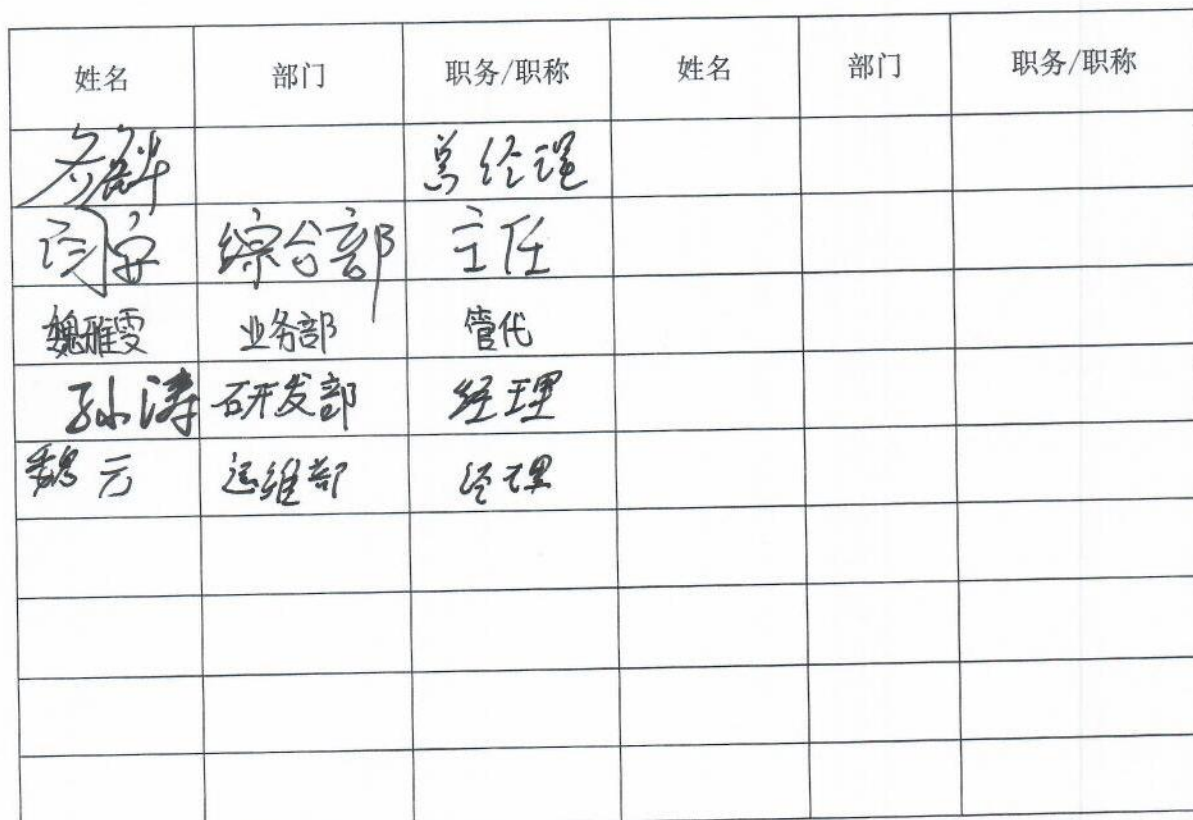 姓名 部门 职务/职称 姓名 部门 职务/职称
总经理
闫安 综合部 主任
魏雅雯 业务部 管代
孙涛 研发部 经理
魏云 运维部 经理